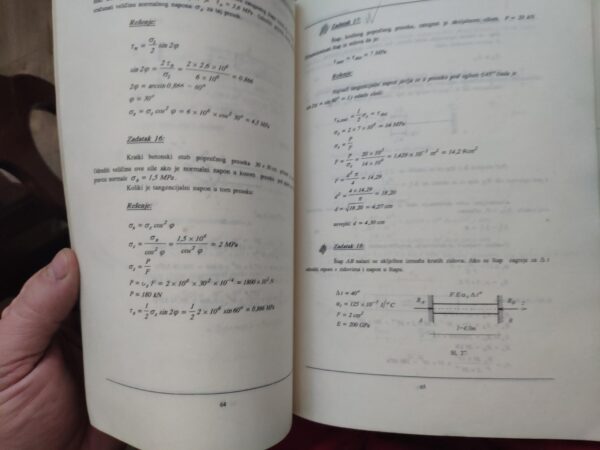 τn = 3,6 MPa
Rešenje:
τn = σz/2 sin 2φ
sin 2φ = 2τn/σz = 2 × 2,6 × 10⁶ / 6 × 10⁶ = 0,866
2φ = arcsin 0,866 = 60°
φ = 30°
σn = σz cos² φ = 6 × 10⁶ × cos² 30° = 4,5 MPa
Zadatak 16:
Kratki betonski stub poprečnog preseka 30 × 30 cm
veličinu ove sile ako je normalni napon u kosom preseku
normale σn = 1,5 MPa.
Koliki je tangencijalni napon u tom preseku:
Rešenje:
σn = σz cos² φ
σz = σn / cos² φ = 1,5 × 10⁶ / cos² φ = 2 MPa
σz = P/F
P = σz F = 2 × 10⁶ × 30² × 10⁻⁴ = 1800 × 10² N
P = 180 kN
τn = 1/2 σz sin 2φ = 1/2 2 × 10⁶ sin 60° = 0,866 MPa
64
Zadatak 17:
Štap, kružnog poprečnog preseka, zategnut je aksijalnom silom P = 20 kN
štap iz uslova da je:
τmax = τdoz = 7 MPa
Rešenje:
Najveći tangencijalni napon javlja se u preseku pod uglom
τn,max = 1/2 σz = τdoz
σz = 2 × 7 × 10⁶ = 14 MPa
σz = P/F
F = P/σz = 20 × 10³ / 14 × 10⁶ = 1,429 × 10⁻³ m² = 14,29 cm²
F = d² π / 4 = 14,29
d² = 4 × 14,29 / π = 18,20
d = √18,20 = 4,27 cm
usvojiti d = 4,30 cm
Zadatak 18:
Štap AB nalazi se uklješten između krutih zidova. Ako se štap zagreje za Δt
odrediti u zidovima i napon u štapu.
Δt = 40°
αt = 125 × 10⁻⁷ 1/°C
F = 2 cm²
E = 200 GPa
F, E, αt, Δt°
RA
RB
z
A
B
Sl. 27
65